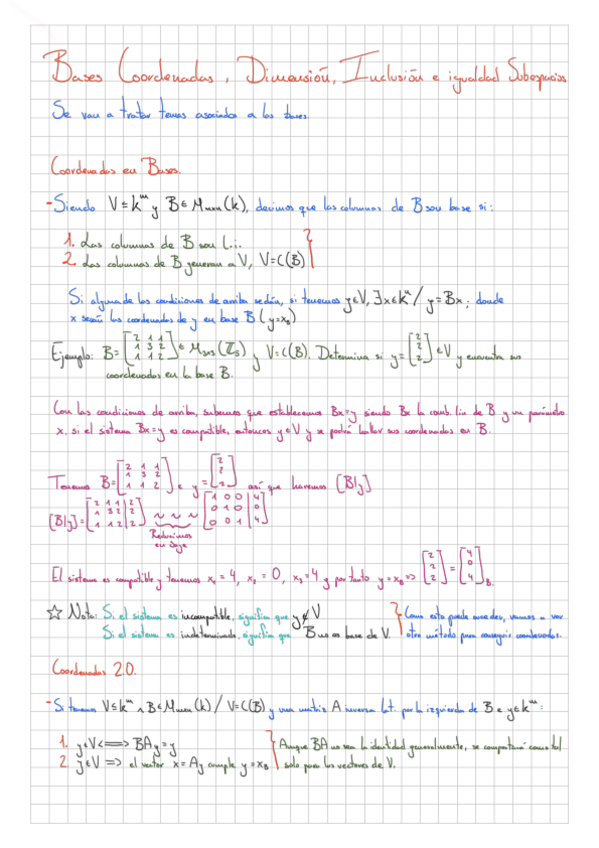 Bases Coordenadas, Dimensión, Inclusión e igualdad Subespacios
Se van a tratar temas asociados a las bases.
Coordenadas en Bases.
- Siendo V ≤ k^m y B ∈ M_mxn(k), decimos que las columnas de B son base si:
1. Las columnas de B son l...
2. Las columnas de B generan a V, V = C(B)
Si alguna de las condiciones de arriba se dan, si tenemos y∈V, ∃x∈k^n / y = Bx; donde
x serán las coordenadas de y en base B (y=x_B)
Ejemplo: B = [2 1 1; 1 3 2; 1 1 2] ∈ M_3x3(ℤ_5) y V = C(B). Determina si y = [2; 2; 2] ∈ V y encuentra sus
coordenadas en la base B.
Con las condiciones de arriba, sabemos que establecemos Bx=y siendo Bx la comb. lin de B y un parámetro
x, si el sistema Bx=y es compatible, entonces y∈V y se podrá hallar sus coordenadas en B.
Tenemos B = [2 1 1; 1 3 2; 1 1 2] e y = [2; 2; 2] así que haremos [B|y]
[B|y] = [2 1 1 | 2; 1 3 2 | 2; 1 1 2 | 2] ~ ~ ~ [1 0 0 | 4; 0 1 0 | 0; 0 0 1 | 4]
Reducimos
en Sage
El sistema es compatible y tenemos x_1 = 4, x_2 = 0, x_3 = 4 y por tanto y = x_B => [2; 2; 2] = [4; 0; 4]_B.
☆ Nota: Si el sistema es incompatible, significa que y ∉ V } Como esto puede suceder, vamos a ver
Si el sistema es indeterminado, significa que B no es base de V. otro método para conseguir coordenadas.
Coordenadas 2.0.
- Si tenemos V ≤ k^m ∧ B ∈ M_mxn(k) / V = C(B) y una matriz A inversa lat. por la izquierda de B e y∈k^m:
1. y∈V <=> BAy = y } Aunque BA no sea la identidad generalmente, se comportará como tal
2. y∈V => el vector x = Ay cumple y = x_B solo para los vectores de V.